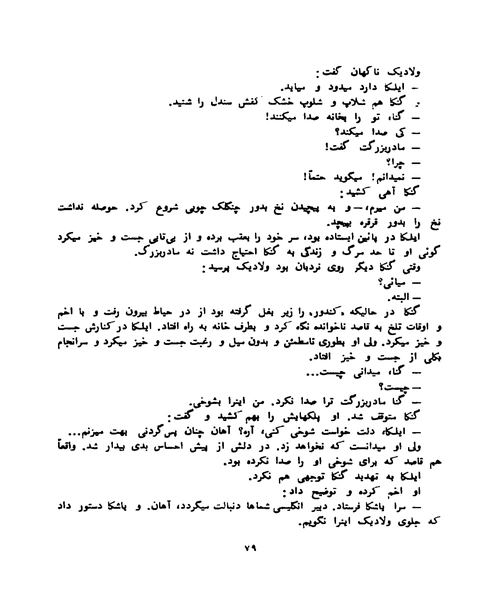 ولادیک ناگهان گفت:
— ایلکا دارد میدود و میاید.
گنکا هم شلاپ و شلوپ خشک کفش سندل را شنید.
— گناء تو را بخانه صدا میکنند!
— کی صدا میکند؟
— مادربزرگت گفت!
— چرا؟
— نمیدانم! میگوید حتماً!
گنکا آهی کشید:
— من میرم، — و به پیچیدن نخ بدور چنگلک چوبی شروع کرد. حوصله نداشت
نخ را بدور قرقره بپیچد.
ایلکا در پائین ایستاده بود، سر خود را بعقب برده و از بی‌تابی جست و خیز میکرد
گوئی او تا حد مرگ و زندگی به گنکا احتیاج داشت نه مادربزرگ.
وقتی گنکا دیگر روی نردبان بود ولادیک پرسید:
— میائی؟
— البته.
گنکا در حالیکه «کندور» را زیر بغل گرفته بود از در حیاط بیرون رفت و با اخم
و اوقات تلخ به قاصد ناخوانده نگاه کرد و بطرف خانه به راه افتاد. ایلکا در کنارش جست
و خیز میکرد. ولی او بطوری نامطمئن و بدون میل و رغبت جست و خیز میکرد و سرانجام
بکلی از جست و خیز افتاد.
— گناء میدانی چیست...
— چیست؟
— گنا مادربزرگت ترا صدا نکرد. من اینرا بشوخی.
گنکا متوقف شد. او پلکهایش را بهم کشید و گفت:
— ایلکا، دلت خواست شوخی کنی، آره؟ آهان چنان پس‌گردنی بهت میزنم...
ولی او میدانست که نخواهد زد. در دلش از پیش احساس بدی بیدار شد. واقعاً
هم قاصد که برای شوخی او را صدا نکرده بود.
ایلکا به تهدید گنکا توجهی هم نکرد.
او اخم کرده و توضیح داد:
— مرا یاشکا فرستاد. دبیر انگلیسی شماها دنبالت میگردد، آهان. و یاشکا دستور داد
که جلوی ولادیک اینرا نگویم.
۷۹